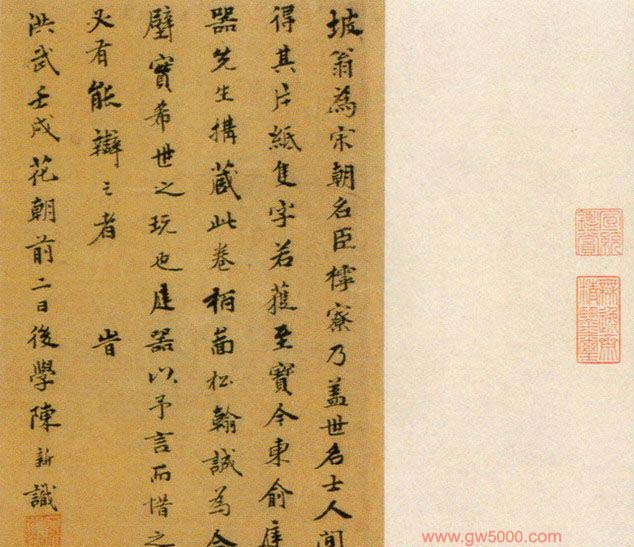 坡翁為宋朝名臣樗寮乃盖世名士人間
得其片紙隻字若獲至寶今東俞庭
器先生搆蔵此卷松翰誠為合
璧寶希世之玩也庭器以予言而惜之
有能辯之者 旹
洪武壬戌花朝前二日後學陳新識
www.gw5000.com